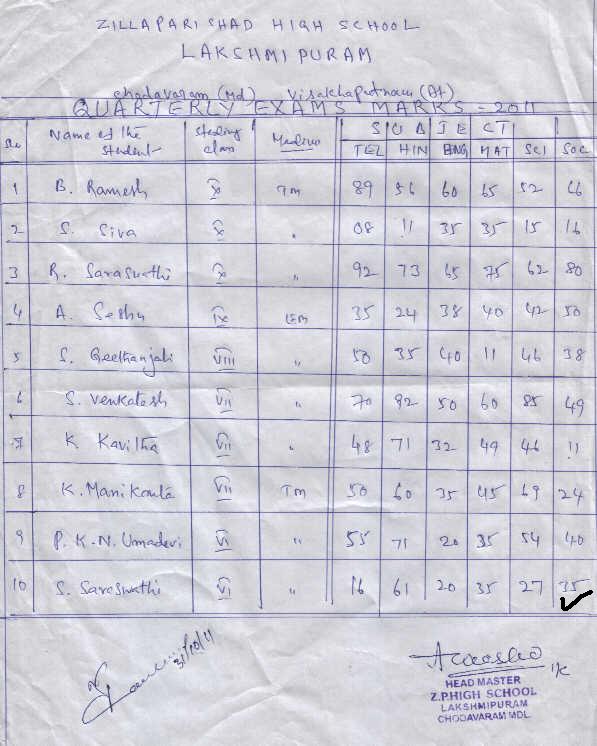 ZILLAPARISHAD HIGH SCHOOL
LAKSHMIPURAM
chodavaram (Md) Visakhapatnam (Dt)
QUARTERLY EXAMS MARKS - 2011
Name of the student Studing class Medium SUBJECT
TEL HIN ENG MAT SCI SOC
1 B. Ramesh X TM 89 56 60 65 52 66
2 S. Siva X " 08 11 35 35 15 16
3 R. Saraswathi X " 92 73 65 75 62 80
4 A. Seshu IX EM 35 24 38 40 42 50
5 S. Geethanjali VIII " 50 35 40 11 46 38
6 S. Venkatesh VII " 70 92 50 60 85 49
7 K Kavitha VII " 48 71 32 49 46 11
8 K. Manikanta VII TM 50 60 35 45 69 24
9 P. K. N. Umadevi VI " 55 71 20 35 54 40
10 S. Saraswathi VI " 16 61 20 35 27 35
31/10/11
HEAD MASTER
Z.P.HIGH SCHOOL
LAKSHMIPURAM
CHODAVARAM MDL